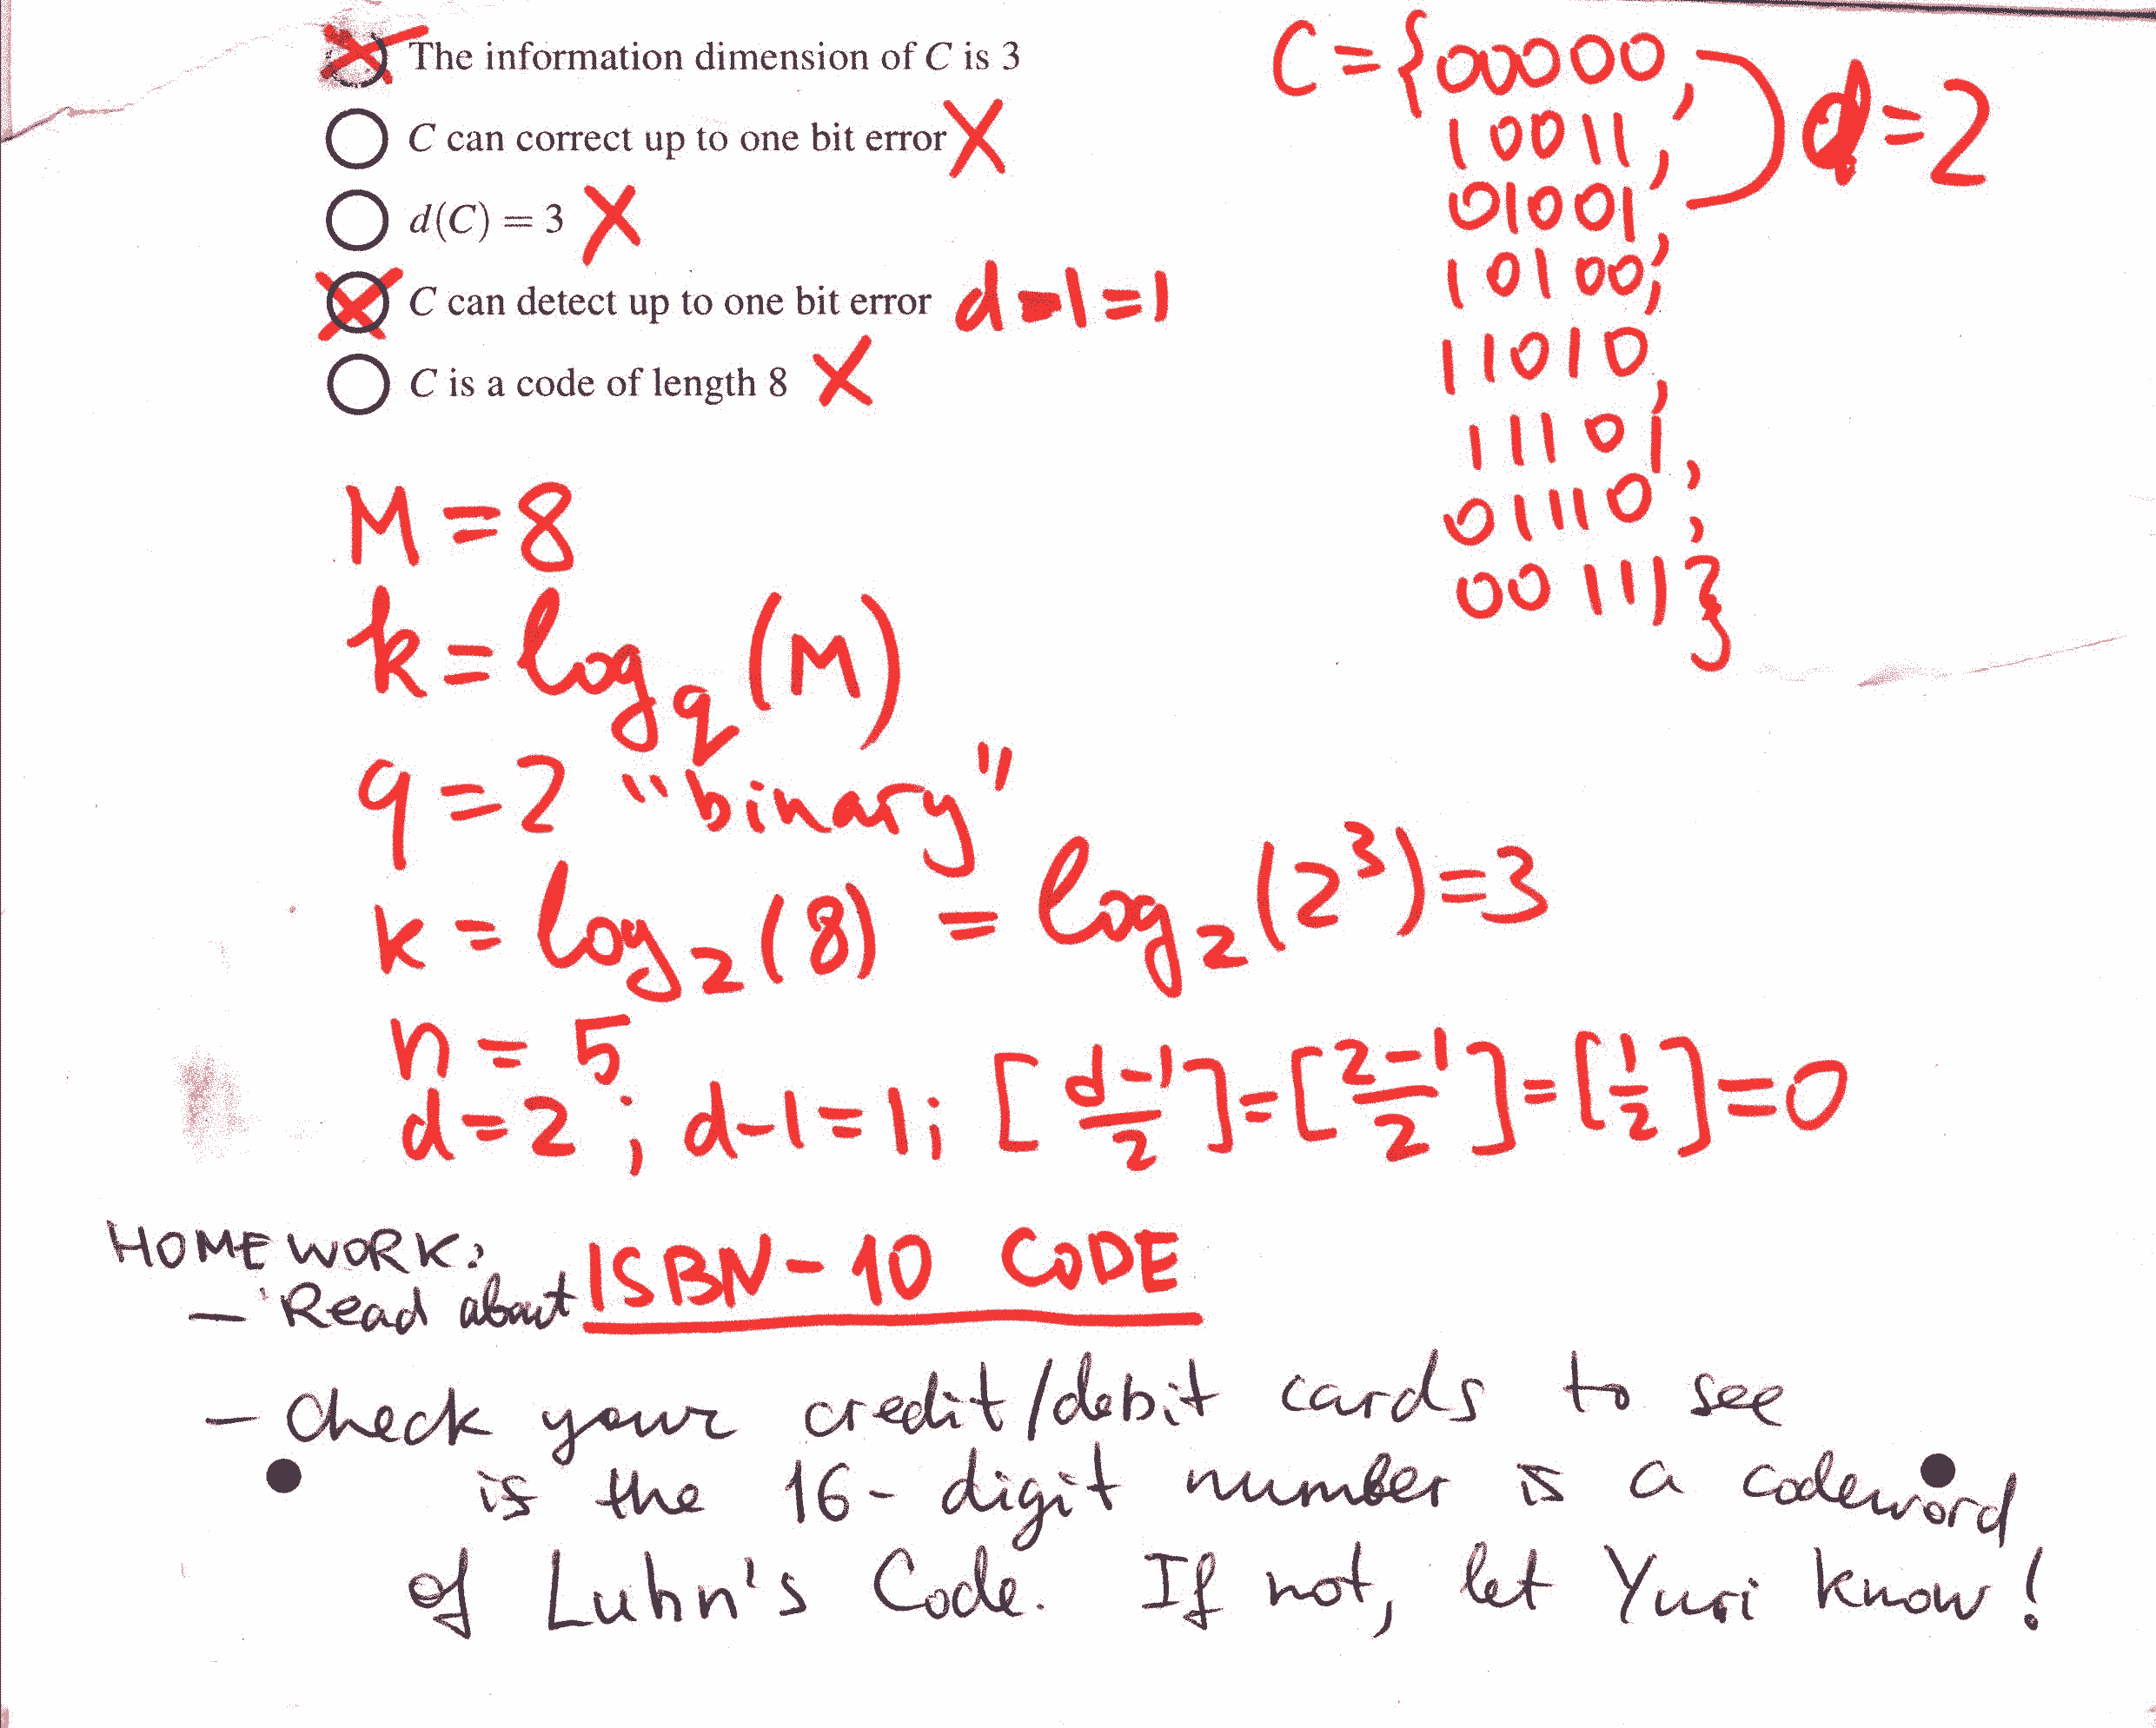 The information dimension of C is 3
C can correct up to one bit error X
d(C) = 3 X
C can detect up to one bit error d-1=1
C is a code of length 8 X
C={00000,
10011,
01001,
10100,
11010,
11101,
01110,
00111}
d=2
M=8
k=log_q(M)
q=2 "binary"
k=log_2(8)=log_2(2^3)=3
n=5
d=2; d-1=1; [d-1/2]=[2-1/2]=[1/2]=0
HOMEWORK:
- Read about ISBN-10 CODE
- check your credit/debit cards to see
is the 16-digit number is a codeword
of Luhn's Code. If not, let Yuri know!